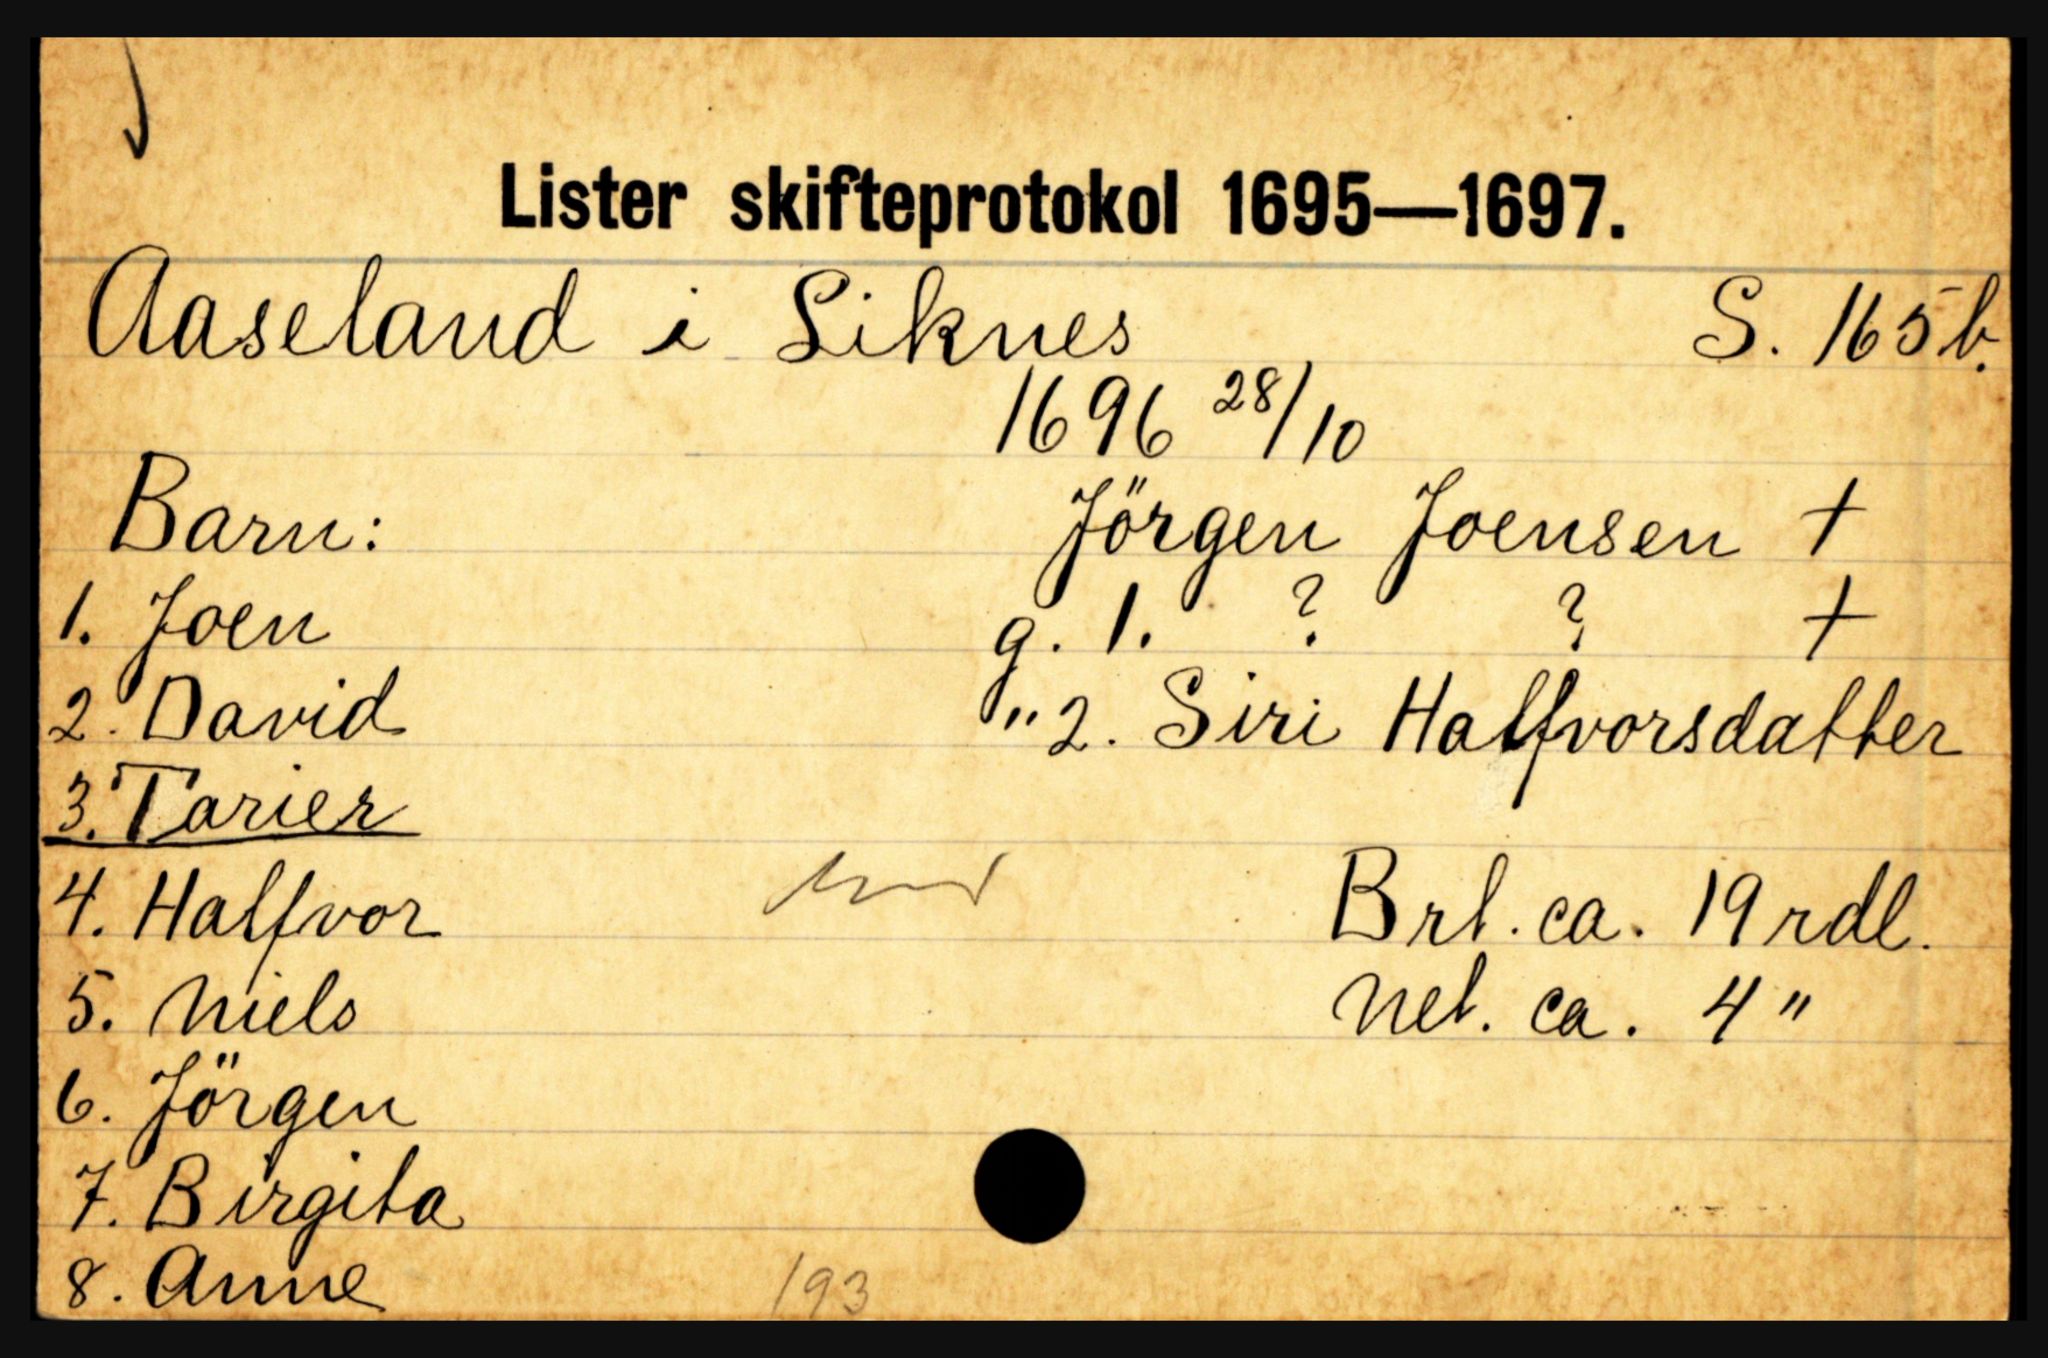 Lister skifteprotokol 1695—1697.
Aaseland i Liknes S. 165 b.
1696 28/10
Barn: Jörgen Joensen +
1. Joen g. 1. ? ? +
2. David " 2. Siri Halfvorsdatter
3. Tarier
4. Halfvor Brt. ca. 19 rdl.
5. Niels Net. ca. 4 "
6. Jörgen
7. Birgita
8. Anne 193